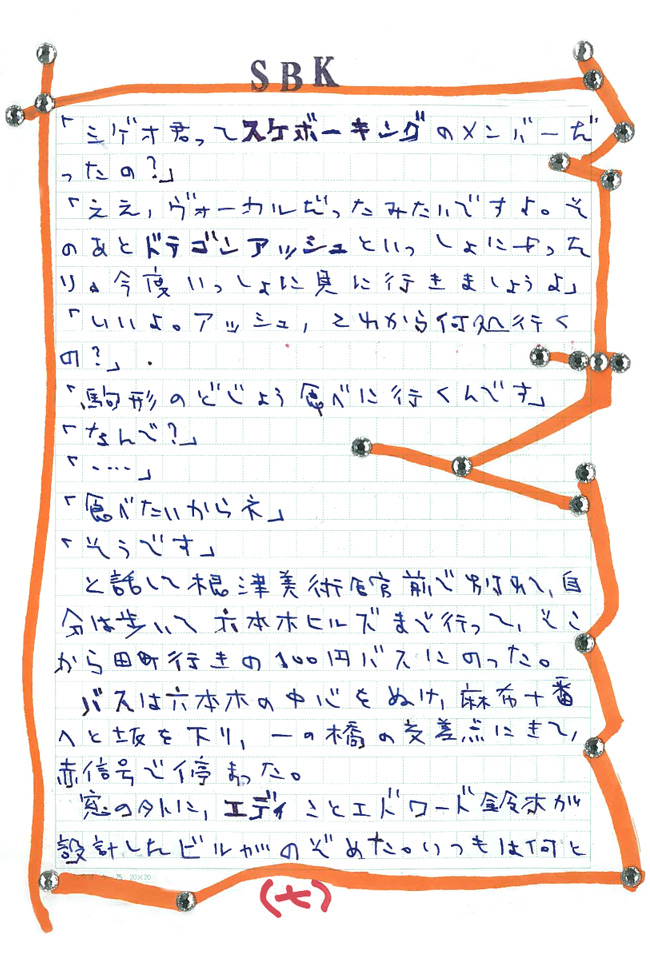 SBK
「シゲオ君ってスケボーキングのメンバーだ
ったの?」
「ええ,ヴォーカルだったみたいですよ。そ
のあとドラゴンアッシュといっしょにやった
り。今度いっしょに見に行きましょうよ」
「いいよ。アッシュ,これから何処行く
の?」
「駒形のどじょう食べに行くんです」
「なんで?」
「····」
「食べたいからネ」
「そうです」
と話して根津美術館前で別れて,自
分は歩いて六本木ヒルズまで行って,そこ
から田町行きの100円バスにのった。
バスは六本木の中心をぬけ,麻布十番
へと坂を下り,一の橋の交差点にきて,
赤信号で停まった。
窓の外に,エディことエドワード鈴木が
設計したビルがのぞめた。いつもは何と
20×20
(七)